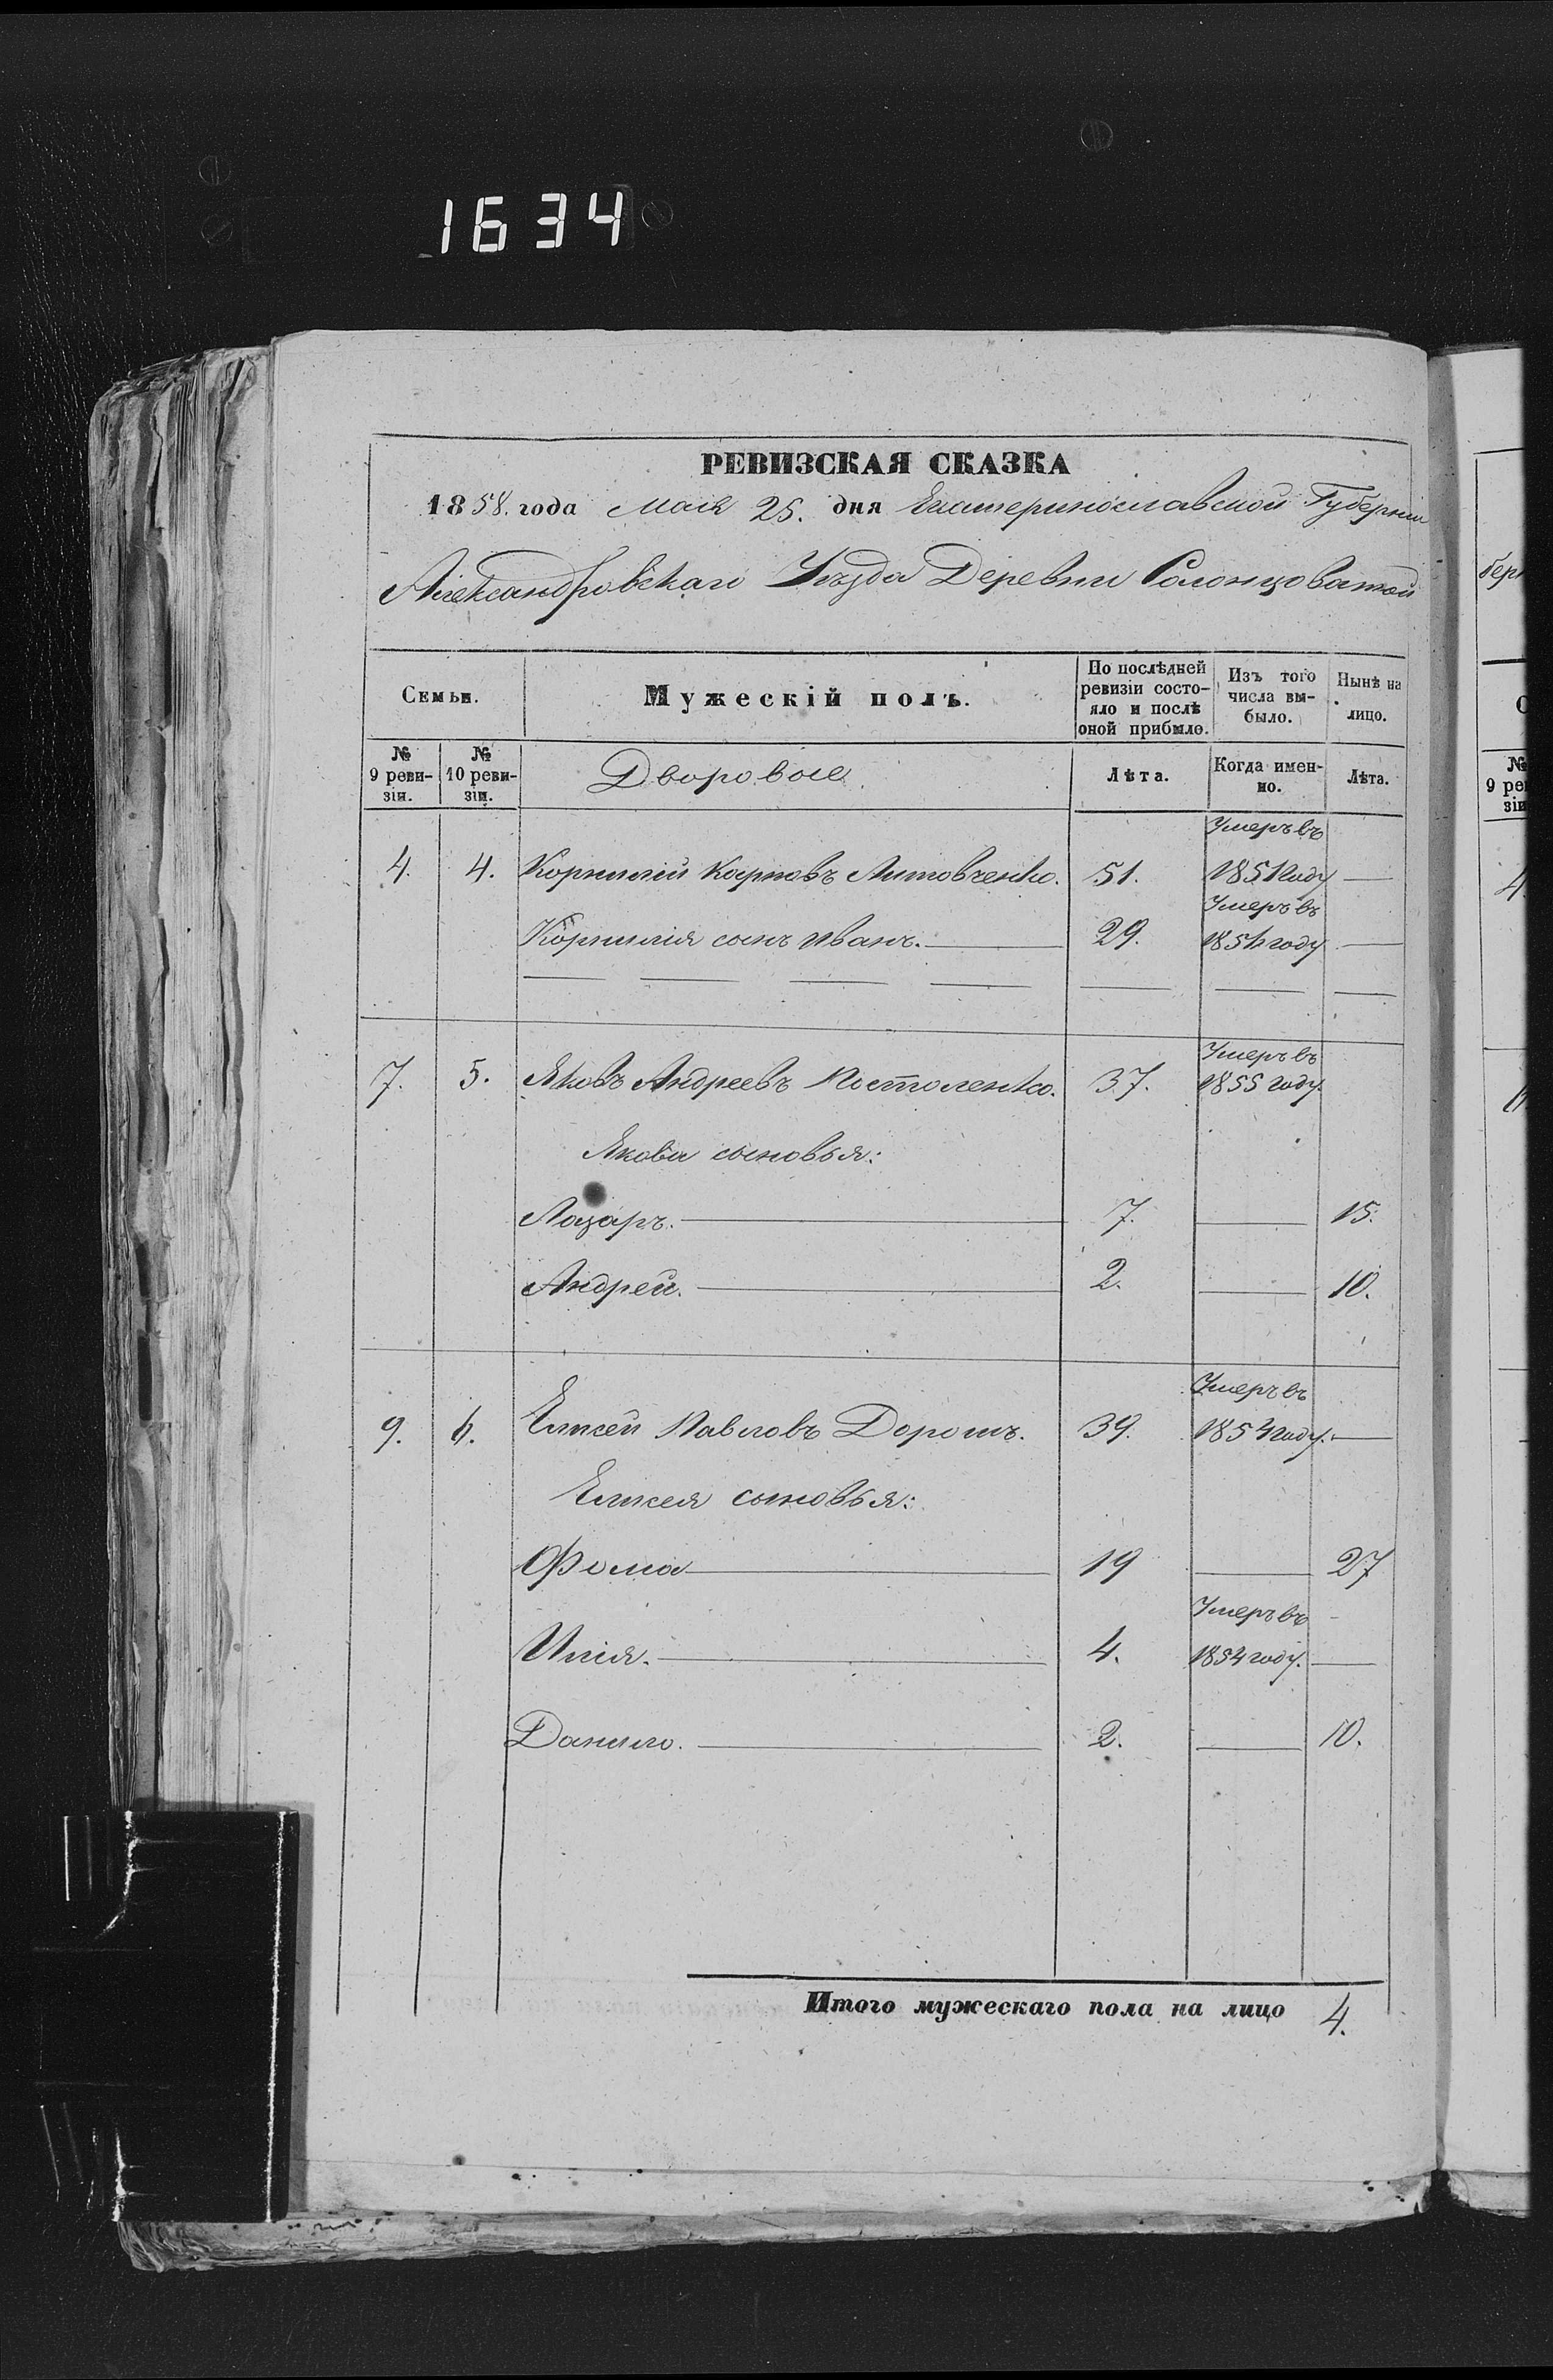 1634
РЕВИЗСКАЯ СКАЗКА
1858. года Мая 25. дня Екатеринославской Губерніи
Александровскаго Уѣзда Деревни Солонцоватой
Семьи. Мужескій полъ. По послѣдней ревизіи состояло и послѣ оной прибыло. Изъ того числа выбыло. Нынѣ на лицо.
№ 9 ревизіи. № 10 ревизіи. Дворовые Лѣта. Когда именно. Лѣта.
Умеръ въ
4. 4. Корнилій Карповъ Литовченко. 51. 1851 году —
Умеръ въ
Корнилія сынъ Иванъ. — 29. году —
Умеръ въ
7. 5. Яковъ Андреевъ Постоленко. 37. 1855 году.
Якова сыновья:
Лазарь. — 7. — 15.
Андрей. — 2. — 10.
Умеръ въ
9. 6. Елисей Павловъ Дорошъ. 39. 1854 году. —
Елисея сыновья:
Фома — 19 — 27
Умеръ въ
Илія. — 4. 1854 году. —
Данило. — 2. — 10.
Итого мужескаго пола на лицо 4.